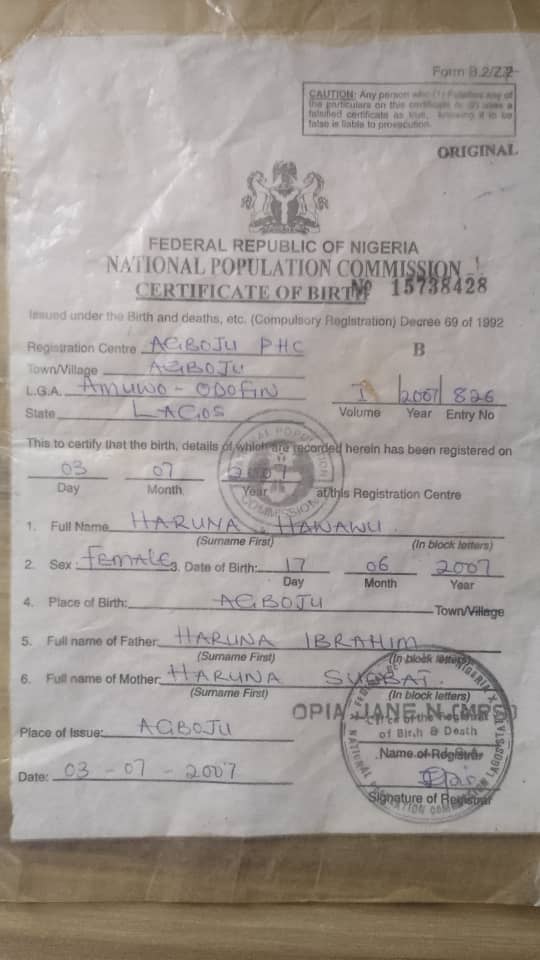 Form B.2/Z.2
CAUTION: Any person who (1) Falsifies any of
the particulars on this certificate or (2) uses a
falsified certificate as true, knowing it to be
false is liable to prosecution.
ORIGINAL
FEDERAL REPUBLIC OF NIGERIA
NATIONAL POPULATION COMMISSION
CERTIFICATE OF BIRTH № 15738428
Issued under the Birth and deaths, etc. (Compulsory Registration) Decree 69 of 1992
Registration Centre AGBOJU PHC B
Town/Village AGBOJU
L.G.A. AMUWO-ODOFIN I 2007 826
State LAGOS Volume Year Entry No
This to certify that the birth, details of which are recorded herein has been registered on
03 07 2007
Day Month Year at this Registration Centre
1. Full Name HARUNA HAWAWU
(Surname First) (In block letters)
2. Sex: FEMALE 3. Date of Birth: 17 06 2007
Day Month Year
4. Place of Birth: AGBOJU Town/Village
5. Full name of Father HARUNA IBRAHIM
(Surname First) (In block letters)
6. Full name of Mother HARUNA
(Surname First) (In block letters)
OPIA JANE N. (MRS)
Place of Issue: AGBOJU
Office of the Registrar
of Birth & Death
Name of Registrar
Date: 03-07-2007
Signature of Registrar